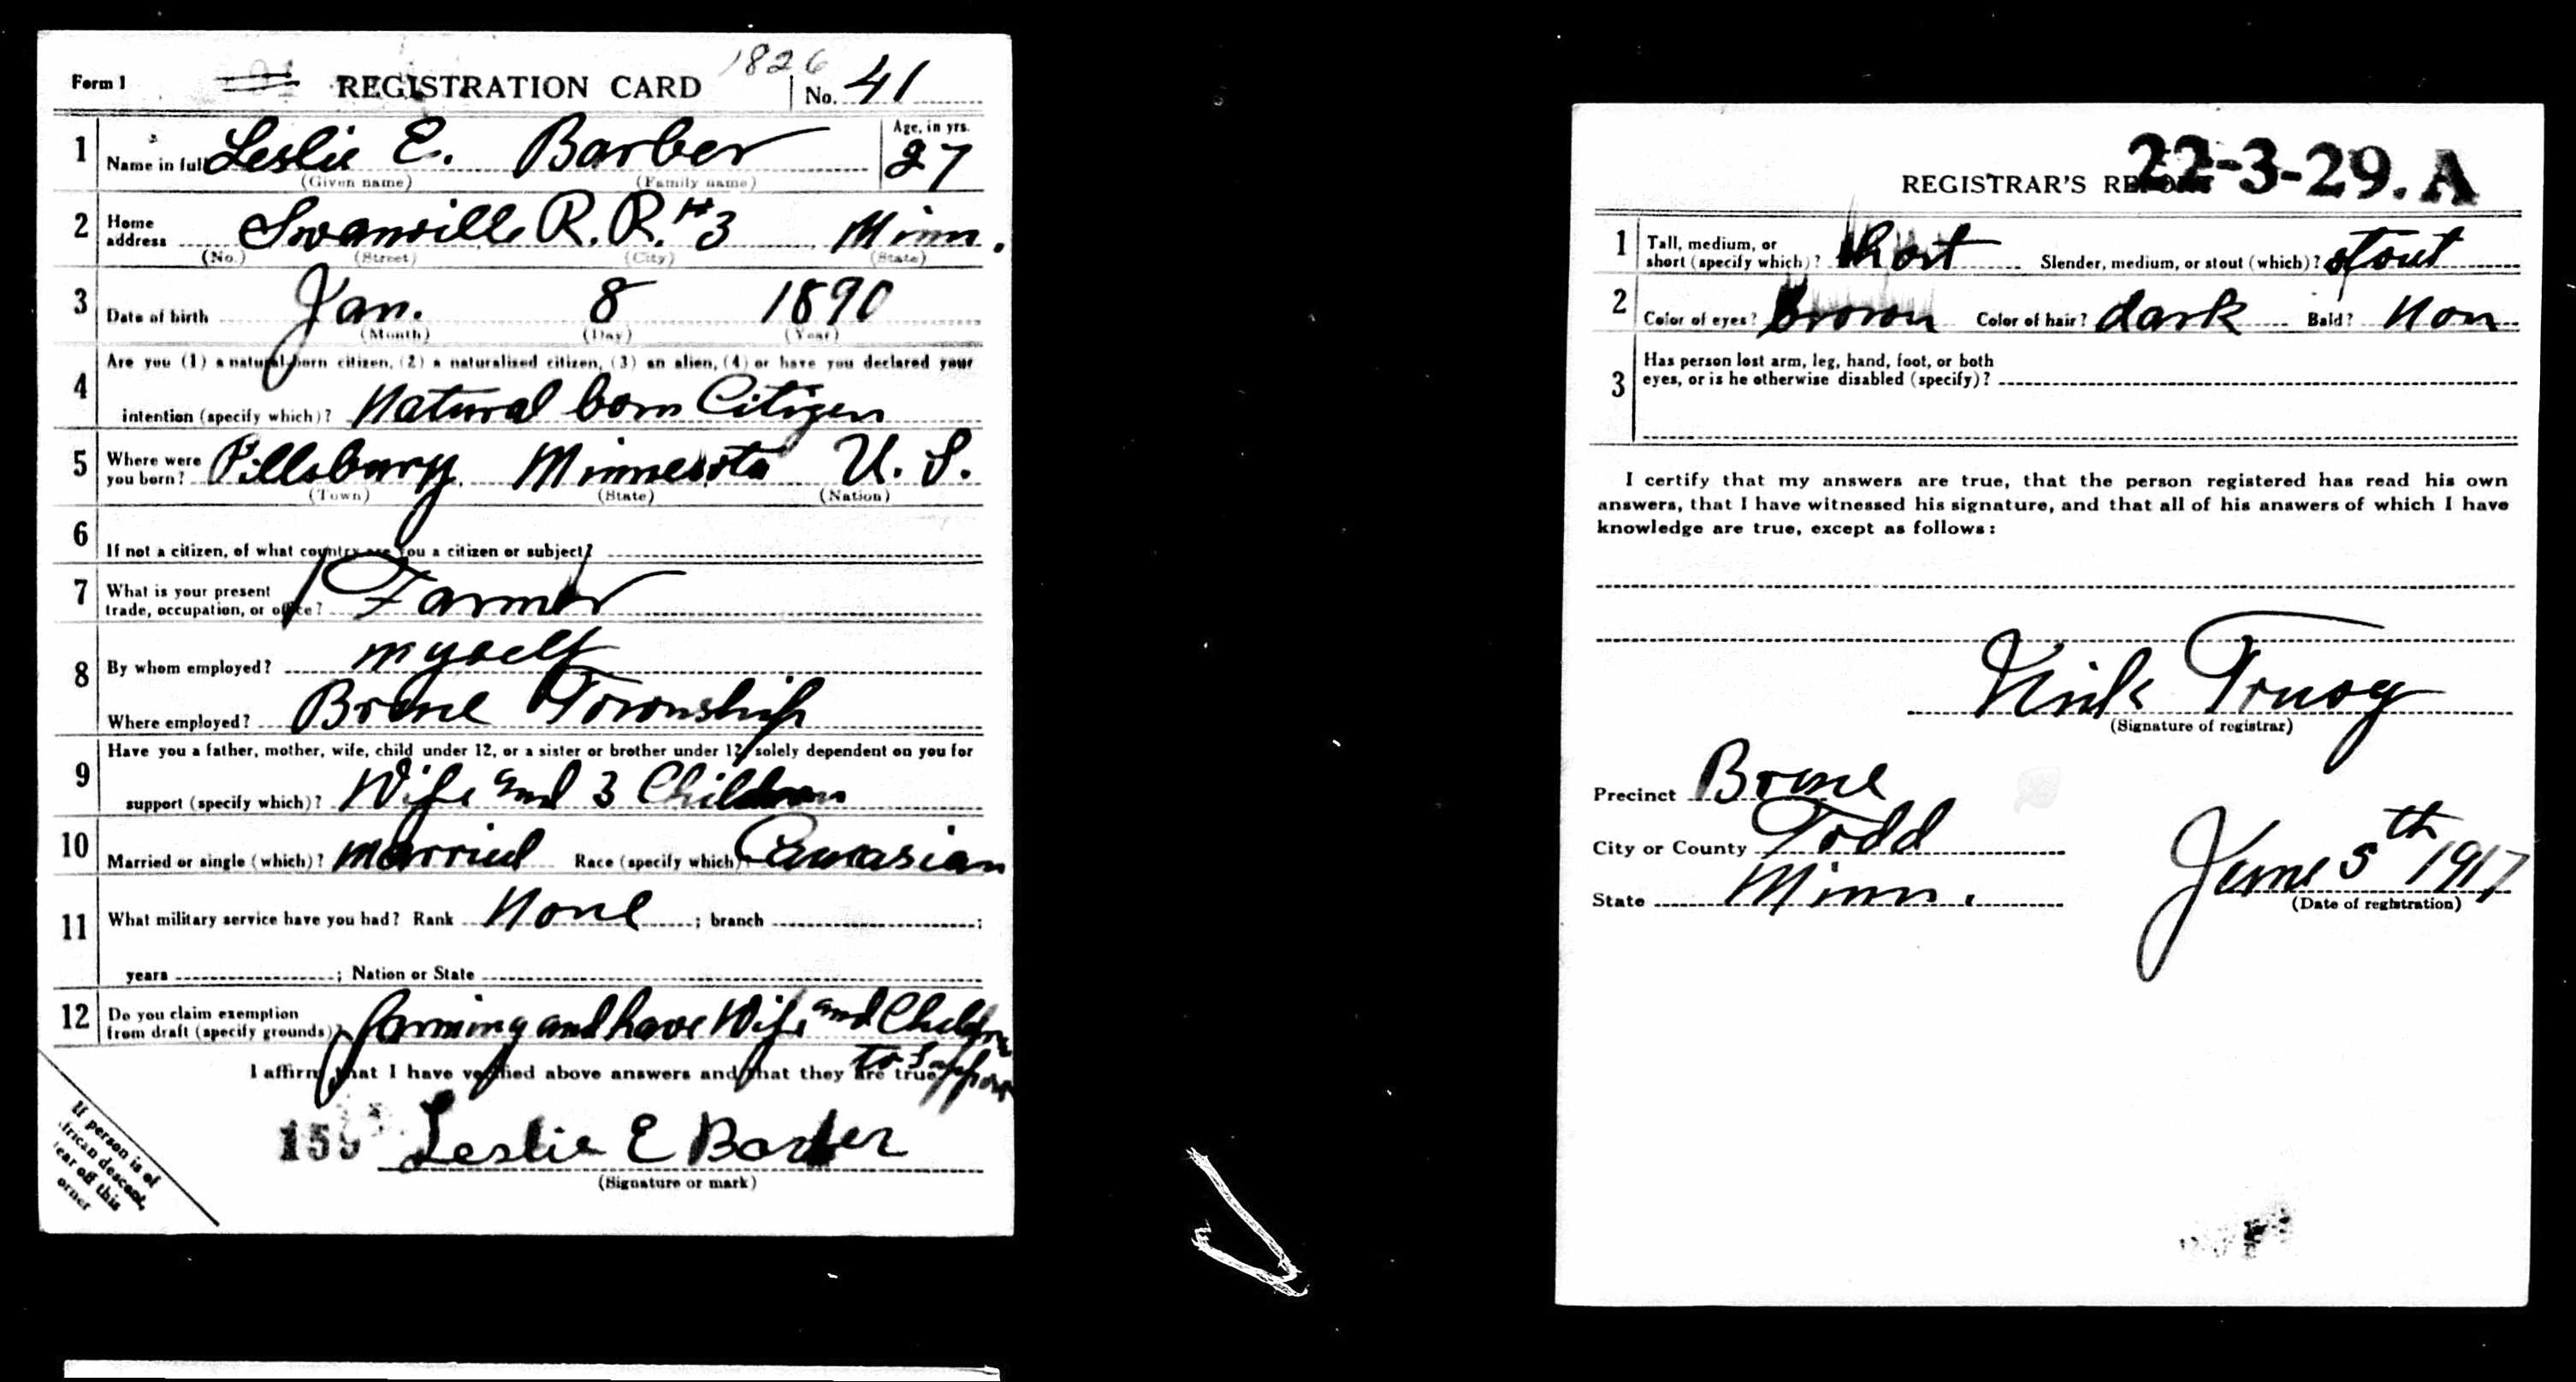 Form 1 REGISTRATION CARD 1826 No. 41
1 Name in full Leslie E. Barber Age, in yrs. 27
(Given name) (Family name)
2 Home address Swanville R. R. #3 Minn.
(No.) (Street) (City) (State)
3 Date of birth Jan. 8 1890
(Month) (Day) (Year)
4 Are you (1) a natural-born citizen, (2) a naturalized citizen, (3) an alien, (4) or have you declared your
intention (specify which)? Natural born Citizen
5 Where were you born? Pillsbury Minnesota U. S.
(Town) (State) (Nation)
6 If not a citizen, of what country are you a citizen or subject?
7 What is your present trade, occupation, or office? Farmer
8 By whom employed? myself
Where employed? Township
9 Have you a father, mother, wife, child under 12, or a sister or brother under 12, solely dependent on you for
support (specify which)? Wife and 3 Children
10 Married or single (which)? married Race (specify which)? Caucasian
11 What military service have you had? Rank None ; branch ;
years ; Nation or State
12 Do you claim exemption from draft (specify grounds)? farming and have Wife and Children
to Support
I affirm that I have verified above answers and that they are true.
Leslie E Barber
(Signature or mark)
If person is of
African descent,
tear off this
corner
22-3-29. A
REGISTRAR'S REPORT
1 Tall, medium, or short (specify which)? Short Slender, medium, or stout (which)? stout
2 Color of eyes? brown Color of hair? dark Bald? Non
3 Has person lost arm, leg, hand, foot, or both
eyes, or is he otherwise disabled (specify)?
I certify that my answers are true, that the person registered has read his own
answers, that I have witnessed his signature, and that all of his answers of which I have
knowledge are true, except as follows:
Nick Truog
(Signature of registrar)
Precinct
City or County Todd
State Minn.
June 5th 1917
(Date of registration)